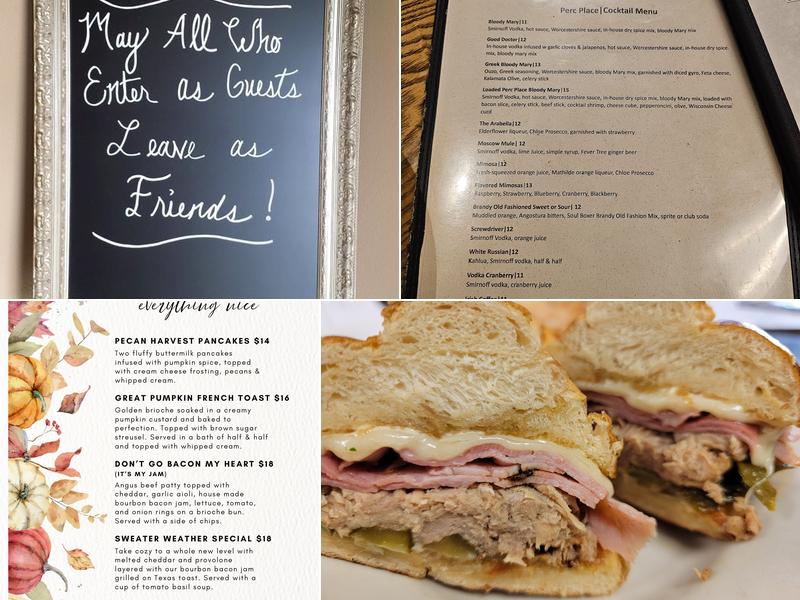 May All Who
Enter as Guests
Leave as
Friends!
Perc Place|Cocktail Menu
Bloody Mary|11
Smirnoff Vodka, hot sauce, Worcestershire sauce, in-house dry spice mix, bloody Mary mix
Good Doctor|12
In-house vodka infused w garlic cloves & jalapenos, hot sauce, Worcestershire sauce, in-house dry spice
mix, bloody mary mix
Greek Bloody Mary|13
Ouzo, Greek seasoning, Worcestershire sauce, bloody Mary mix, garnished with diced gyro, Feta cheese,
Kalamata Olive, celery stick
Loaded Perc Place Bloody Mary|15
Smirnoff Vodka, hot sauce, Worcestershire sauce, in-house dry spice mix, bloody Mary mix, loaded with
bacon slice, celery stick, beef stick, cocktail shrimp, cheese cube, pepperoncini, olive, Wisconsin Cheese
curd
The Arabella|12
Elderflower liqueur, Chloe Prosecco, garnished with strawberry
Moscow Mule| 12
Smirnoff vodka, lime Juice, simple syrup, Fever Tree ginger beer
Mimosa|12
Fresh-squeezed orange juice, Mathilde orange liqueur, Chloe Prosecco
Flavored Mimosas|13
Raspberry, Strawberry, Blueberry, Cranberry, Blackberry
Brandy Old Fashioned Sweet or Sour| 12
Muddled orange, Angostura bitters, Soul Boxer Brandy Old Fashion Mix, sprite or club soda
Screwdriver|12
Smirnoff Vodka, orange juice
White Russian|12
Kahlua, Smirnoff vodka, half & half
Vodka Cranberry|11
Smirnoff vodka, cranberry juice
Irish Coffee|11
everything nice
PECAN HARVEST PANCAKES $14
Two fluffy buttermilk pancakes
infused with pumpkin spice, topped
with cream cheese frosting, pecans &
whipped cream.
GREAT PUMPKIN FRENCH TOAST $16
Golden brioche soaked in a creamy
pumpkin custard and baked to
perfection. Topped with brown sugar
streusel. Served in a bath of half & half
and topped with whipped cream.
DON'T GO BACON MY HEART $18
(IT'S MY JAM)
Angus beef patty topped with
cheddar, garlic aioli, house made
bourbon bacon jam, lettuce, tomato,
and onion rings on a brioche bun.
Served with a side of chips.
SWEATER WEATHER SPECIAL $18
Take cozy to a whole new level with
melted cheddar and provolone
layered with our bourbon bacon jam
grilled on Texas toast. Served with a
cup of tomato basil soup.